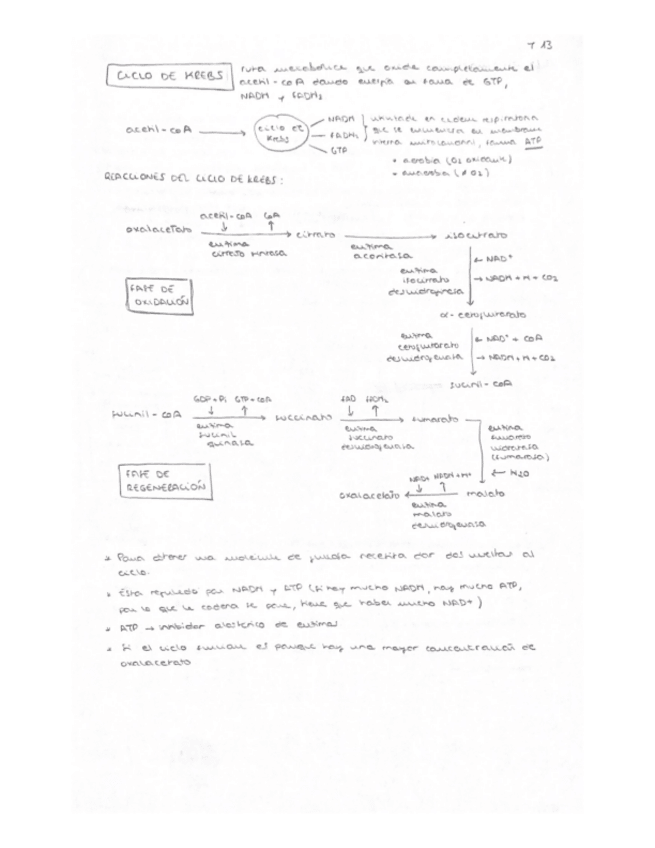 T 13
CICLO DE KREBS
ruta metabólica que oxida completamente el
acetil-coA dando energía en forma de GTP,
NADH y FADH₂
acetil-coA
ciclo de
Krebs
NADH
FADH₂
GTP
en cadena respiratoria
que se encuentra en membrana
interna mitocondrial, forma ATP
• aerobia (O₂ oxidante)
• anaerobia (≠ O₂)
REACCIONES DEL CICLO DE KREBS:
oxalacetato
acetil-coA CoA
enzima
citrato sintasa
citrato
enzima
aconitasa
isocitrato
NAD⁺
NADH + H + CO₂
enzima
isocitrato
deshidrogenasa
FASE DE
OXIDACIÓN
α-cetoglutarato
enzima
cetoglutarato
deshidrogenasa
NAD⁺ + COA
NADH + H + CO₂
succinil-coA
succinil-coA
GDP + Pi GTP + coA
enzima
succinil
quinasa
succinato
FAD
enzima
succinato
deshidrogenasa
fumarato
enzima
fumarato
hidratasa
(fumarasa)
H₂O
malato
NADH + H⁺
enzima
malato
deshidrogenasa
oxalacetato
FASE DE
REGENERACIÓN
* Para obtener una molécula de glucosa necesita dar dos vueltas al
ciclo.
* Está regulado por NADH y ATP (si hay mucho NADH, hay mucho ATP,
por lo que la cadena se para, tiene que haber mucho NAD+)
* ATP → inhibidor alostérico de enzimas
* Si el ciclo funciona es porque hay una mayor concentración de
oxalacetato